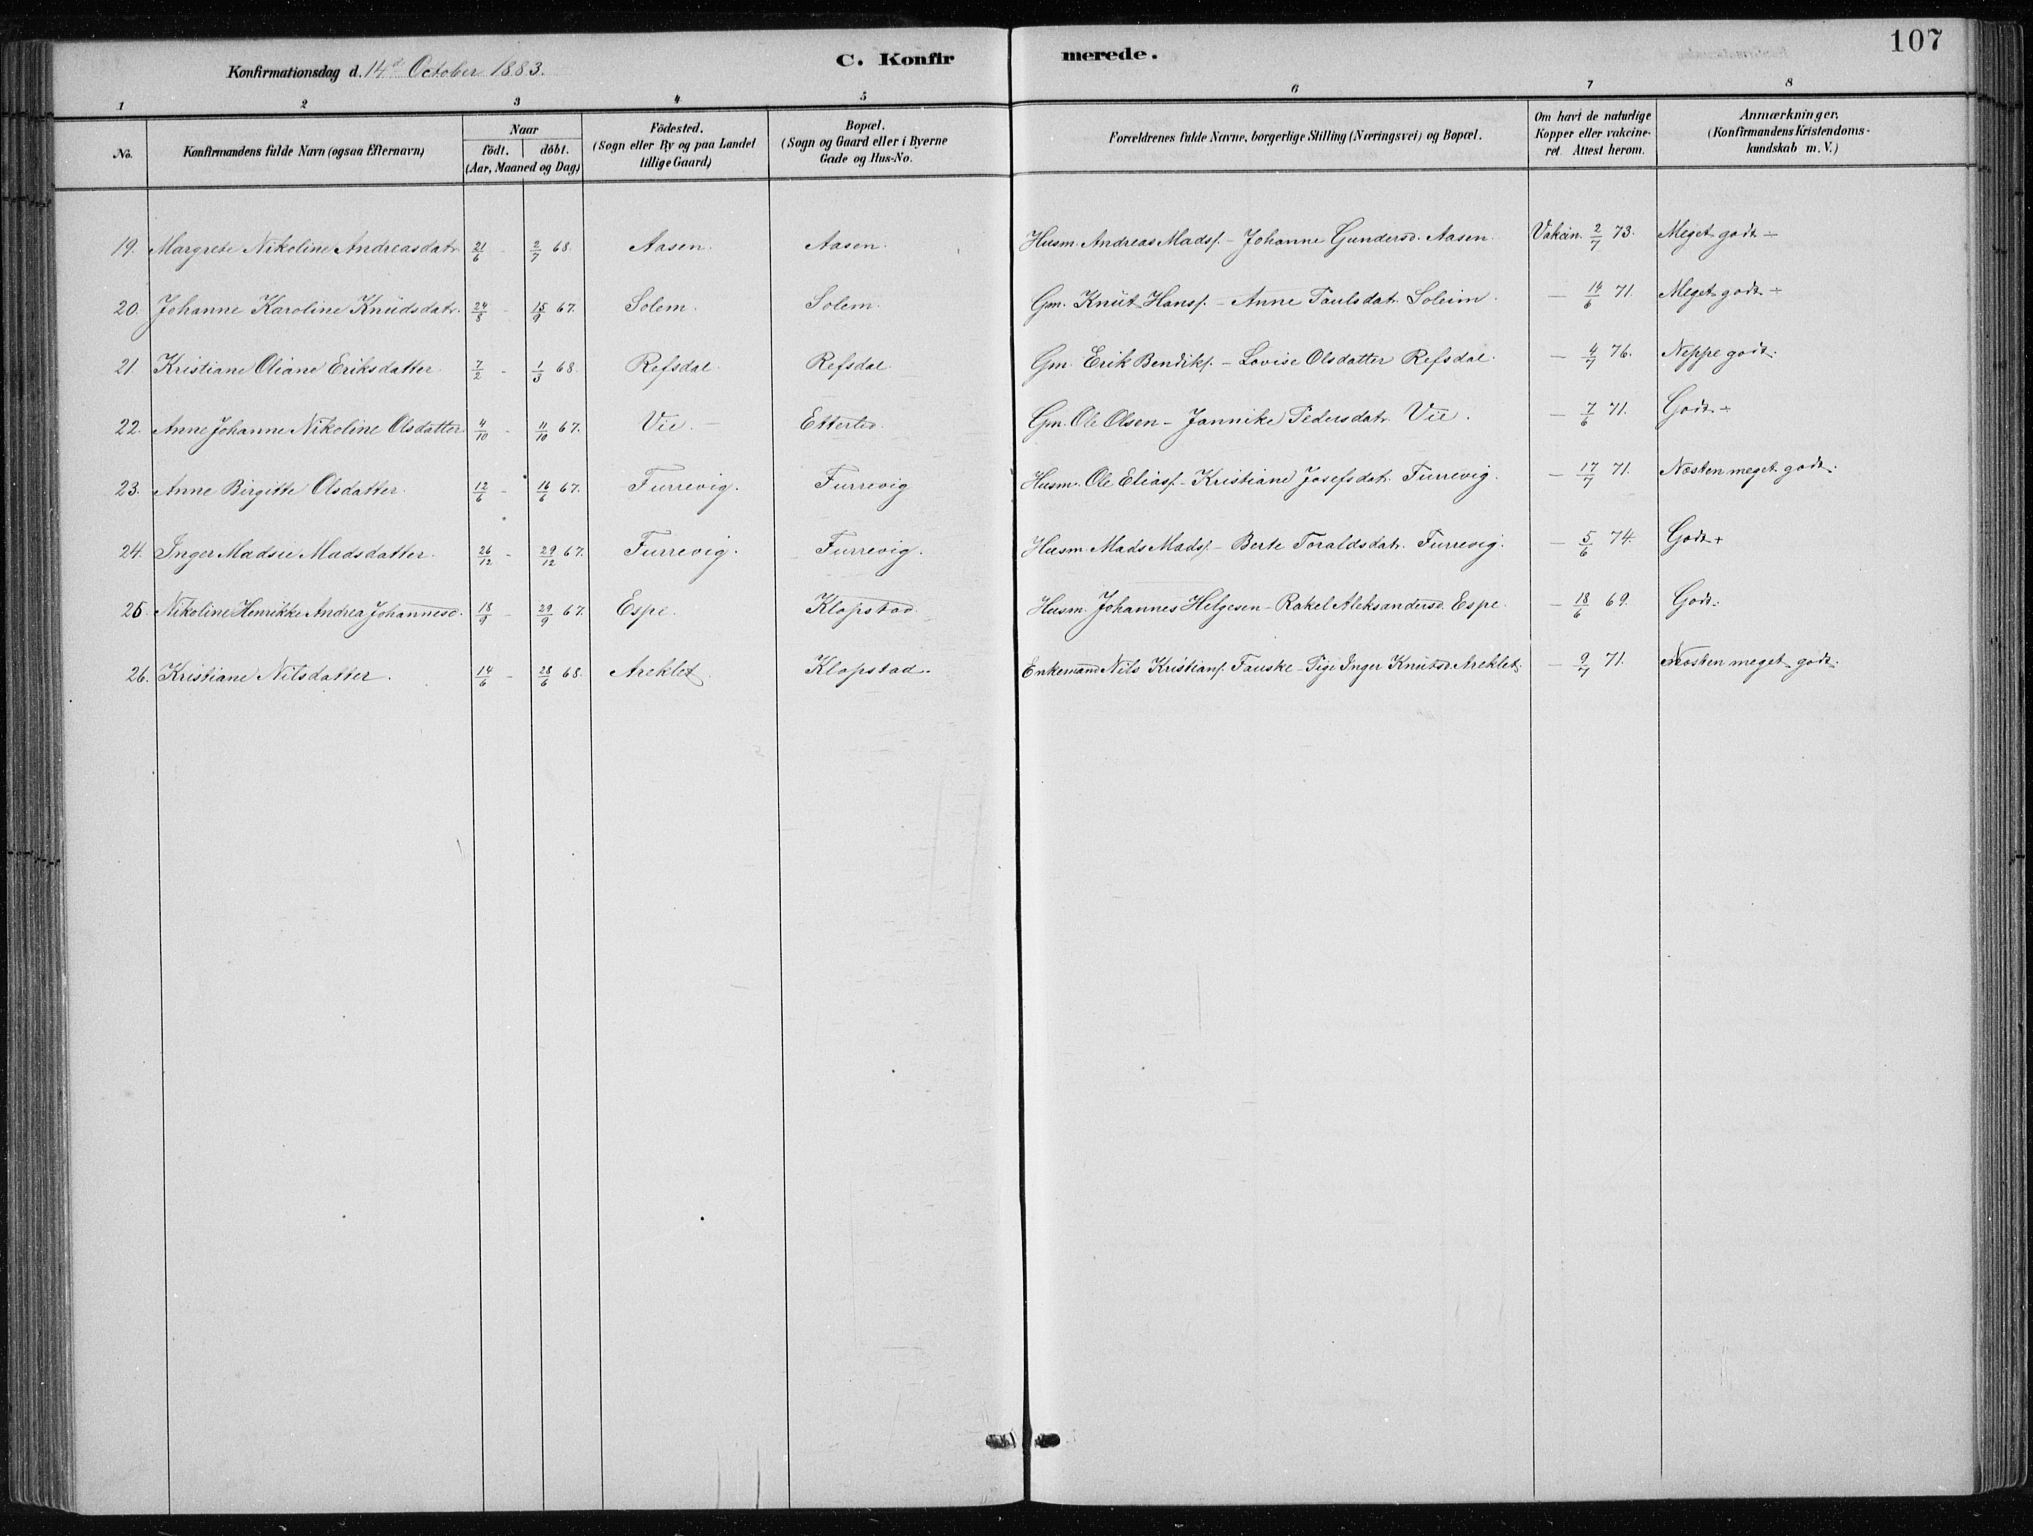 107
Konfirmationsdag d. 14de October 1883. C. Konfir merede.
1 2 3 4 5 6 7 8
No. Konfirmandens fulde Navn (ogsaa Efternavn) Naar födt. döbt. (Aar, Maaned og Dag) Födested. (Sogn eller By og paa Landet tillige Gaard) Bopæl. (Sogn og Gaard eller i Byerne Gade og Hus-No. Forældrenes fulde Navne, borgerlige Stilling (Næringsvei) og Bopæl. Om havt de naturlige Kopper eller vakcineret. Attest herom. Anmærkninger. (Konfirmandens Kristendomskundskab m. V.)
19. Margrete Nikoline Andreasdatr. 21/6 - 2/7 68. Aasen. Aasen. Husm. Andreas Madsf. - Johanne Gundersd. Aasen. Vakcin. 2/7 73. Meget godt ÷
20. Johanne Karoline Knudsdatr. 24/8 - 15/9 67. Solem. Solem. Gm. Knut Hansf. - Anne Paulsdat. Soleim. — 14/6 71. Meget godt ÷
21 Kristiane Oliane Eriksdatter 7/2 - 1/3 68. Refsdal. Refsdal Gm. Erik Bendiksf. - Lovise Olsdatter Refsdal. — 4/7 76. Neppe godt.
22. Anne Johanne Nikoline Olsdatter 4/10 - 11/10 67. Vie. — Ettertev. Gm. Ole Olsen - Jannike Pedersdatr. Vie. — 7/6 71. Godt ÷
23. Anne Birgitte Olsdatter. 12/6 - 16/6 67. Furrevig. Furrevig Husm. Ole Eliasf. - Kristiane Josefsdatr. Furrevig. — 17/7 71. Næsten meget godt.
24. Inger Madsie Madsdatter. 26/12 - 29/12 67. Furrevig. Furrevig. Husm. Mads Madsf. - Berte Toraldsdatr. Furrevig. — 5/6 74. Godt +
25. Nikoline Henrikke Andrea Johannesd. 18/9 - 29/9 67. Espe. Klopstad. Husm. Johannes Helgesen - Rakel Aleksandersd. Espe. — 18/6 69. Godt.
26. Kristiane Nilsdatter. 14/6 - 28/6 68. Areklet. Klopstad. Enkemand Nils Kristiansf. Fauske - Pige Inger Knutsd. Areklet. — 9/7 71. Næsten meget godt.